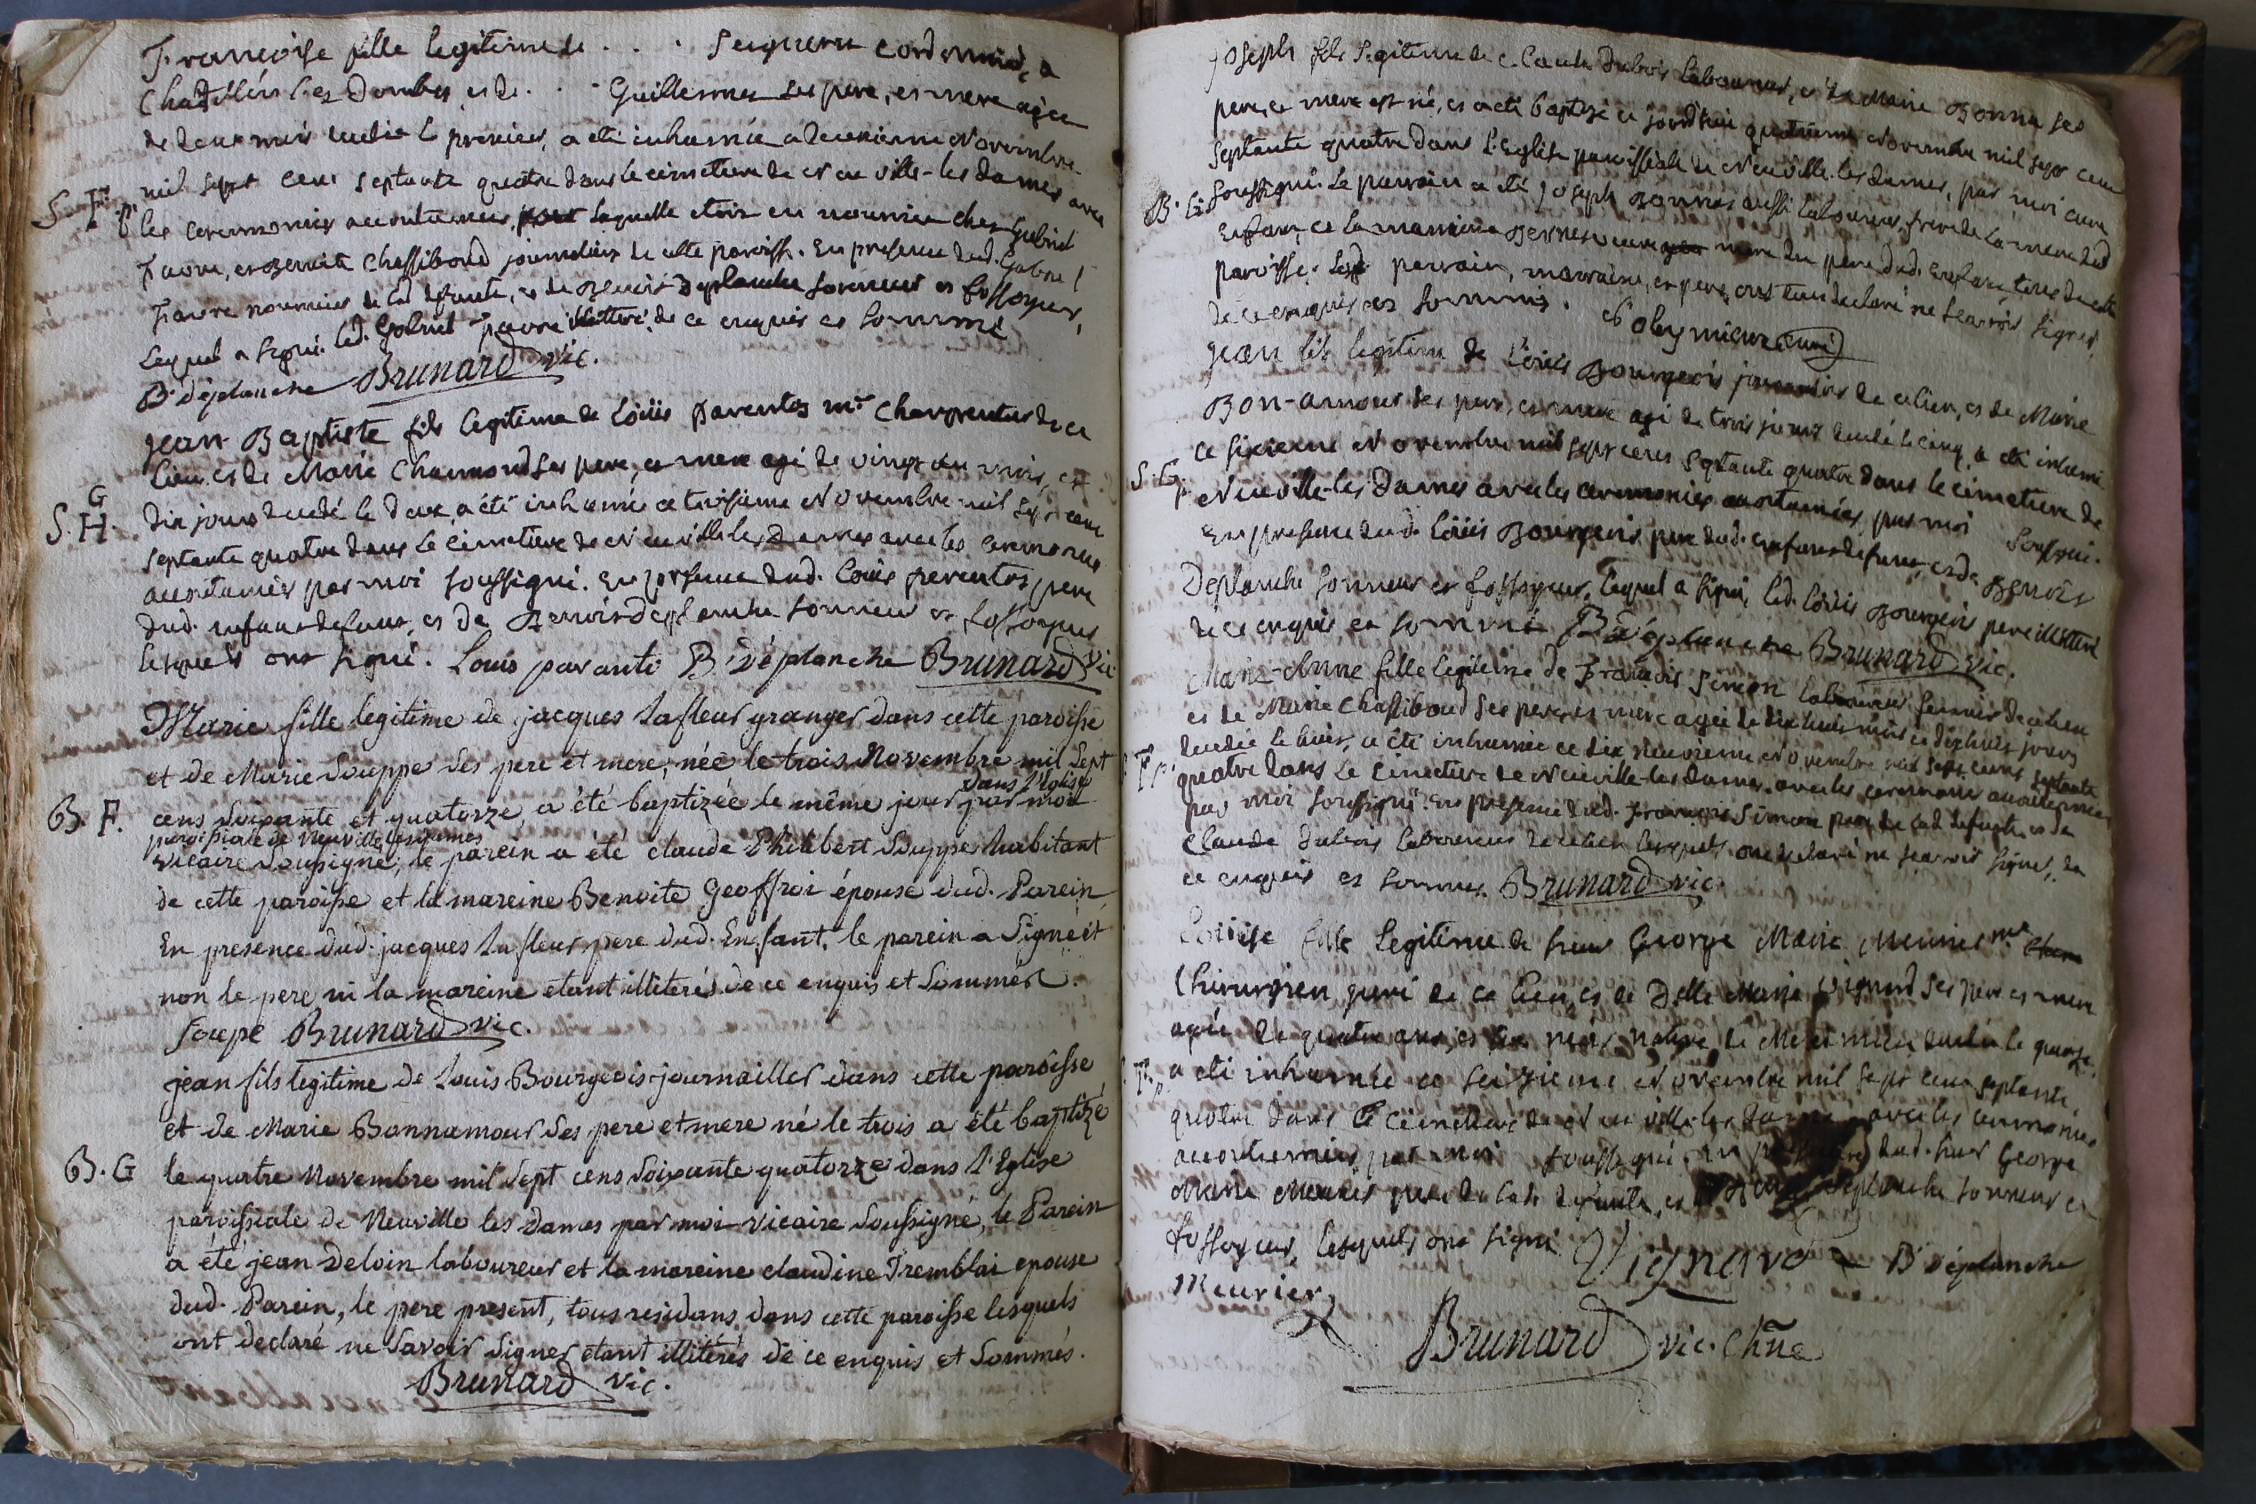 Françoise fille legitime de . . . Seigneru cordonnier, a
Chatillon les Dombes, et de . . . Guillermet ses pere, et mere agée
de deux mois decedée le premier, a été inhumée ce deuxieme Novembre
S. F. p. mil sept cens septante quatre dans le cimetiere de Neuville-les dames avec
les ceremonies accoutumees, laquelle etoit en nourrice chez Gabriel
Favre, et Benoite Chassiboud journaliers de cette paroisse. En presence dud. Gabriel
Favre nourricier de lad. defunte, et de Benoit Deplanche sonneur et fossoyeur,
lequel a signé. led. Gabriel Favre illitteré de ce enquis et sommé
B. déplanche Brunard vic.
Jean Baptiste fils legitime de Loüis parentos mre Charpentier de ce
lieu et de Marie Chaumond ses pere, et mere agé de vingt un mois, et
S. G H. dix jours decedé le deux, a été inhumé ce troisieme Novembre mil sept cens
septante quatre dans le cimetiere de Neuville les Dames avec les ceremonies
accoutumées par moi soussigné. En presence dud. Louis parentos pere
dud. enfant defunt, et de Benoit deplanche sonneur et fossoyeur
lesquels ont signé. Louis paranto B. déplanche Brunard vic
Marie fille legitime de jacques Lafleur granger dans cette paroisse
et de Marie Souppe ses pere et mere, née le trois Novembre mil Sept
B. F. cens soixante et quatorze, a été baptizée le même jour dans l'Eglise par moi
paroissiale de Neuville les dames
vicaire soussigné, le parein a été claude Philibert Souppe habitant
de cette paroisse et la mareine Benoite Geoffroi épouse dud. Parein
En presence dud. jacques Lafleur pere dud. Enfant, le parein a Signé et
non le pere ni la mareine etant illiterés de ce enquis et Sommés.
Soupe Brunard vic.
jean fils legitime de Louis Bourgeois journaillier dans cette paroisse
et de Marie Bonnamour ses pere et mere né le trois a été baptizé
B. G le quatre Novembre mil Sept cens Soixante quatorze dans l'Eglise
paroissiale de Neuville les dames par moi vicaire Soussigné, le Parein
a été jean Deloin laboureur et la mareine claudine Tremblai epouse
dud. Parein, le pere present, tous residans dans cette paroisse lesquels
ont declaré ne Savoir Signer etant illitérés de ce enquis et Sommés.
Brunard vic.
Joseph fils legitime de Claude Dubois laboureur, et de Marie Bonna ses
pere, et mere est né, et a été baptizé ce jourd'hui quatrieme Novembre mil sept cens
septante quatre dans l'Eglise paroissiale de Neuville-les dames, par moi curé
B. G. soussigné. Le parrain a été Joseph Bonna aussi laboureur, frere de la mere dud
Enfant, et la marraine mere du pere dud. Enfant tous de cette
paroisse. Lesd. parrain, marraine, et pere ont tous declaré ne scavoir signer,
de ce enquis et sommés. curé
Jean fils legitime de Loüis Bourgeois journalier de ce lieu, et de Marie
Bon-amour ses pere, et mere agé de trois jours decedé le cinq, a été inhumé
ce sixieme Novembre mil sept cens septante quatre dans le cimetiere de
S. G. p. Neuville-les Dames avec les ceremonies accoutumées, par moi soussigné.
En presence dud. Loüis Bourgeois pere dud. enfant defunt, et de Benoit
Deplanche sonneur et fossoyeur, lequel a signé, led. Loüis Bourgeois pere illitteré
de ce enquis et sommé B. déplanche Brunard vic.
Marie-Anne fille legitime de François Simon laboureur fermier de ce lieu
et de Marie Chassiboud ses pere, et mere agée de dix huit mois et dix huit jours
decedée le hier, a été inhumée ce dix neuvieme Novembre mil sept cens septante
F. p. quatre dans le cimetiere de Neuville-les dames, avec les ceremonies accoutumées
par moi soussigné. En presence dud. François Simon pere de lad. defunte, et de
Claude Dubois laboureur de ce lieu lesquels ont declaré ne scavoir signer, de
ce enquis et sommés. Brunard vic.
Loüise fille legitime de sieur George Marie Meunier mre
Chirurgien juré de ce lieu, et de Delle Marie Vignard ses pere et mere
agée de quatre ans, et six mois, native de decedée le quinze,
F. p. a été inhumée ce seizieme Novembre mil sept cens septante
quatre dans le cimetiere de Neuville-les dames avec les ceremonies
accoutumées, par moi soussigné. En presence dud. sieur George
Marie Meunier pere de lad. defunte, et de Benoit Deplanche sonneur et
fossoyeur, lesquels ont signé Vignard B. déplanche
Meunier
Brunard vic. chne